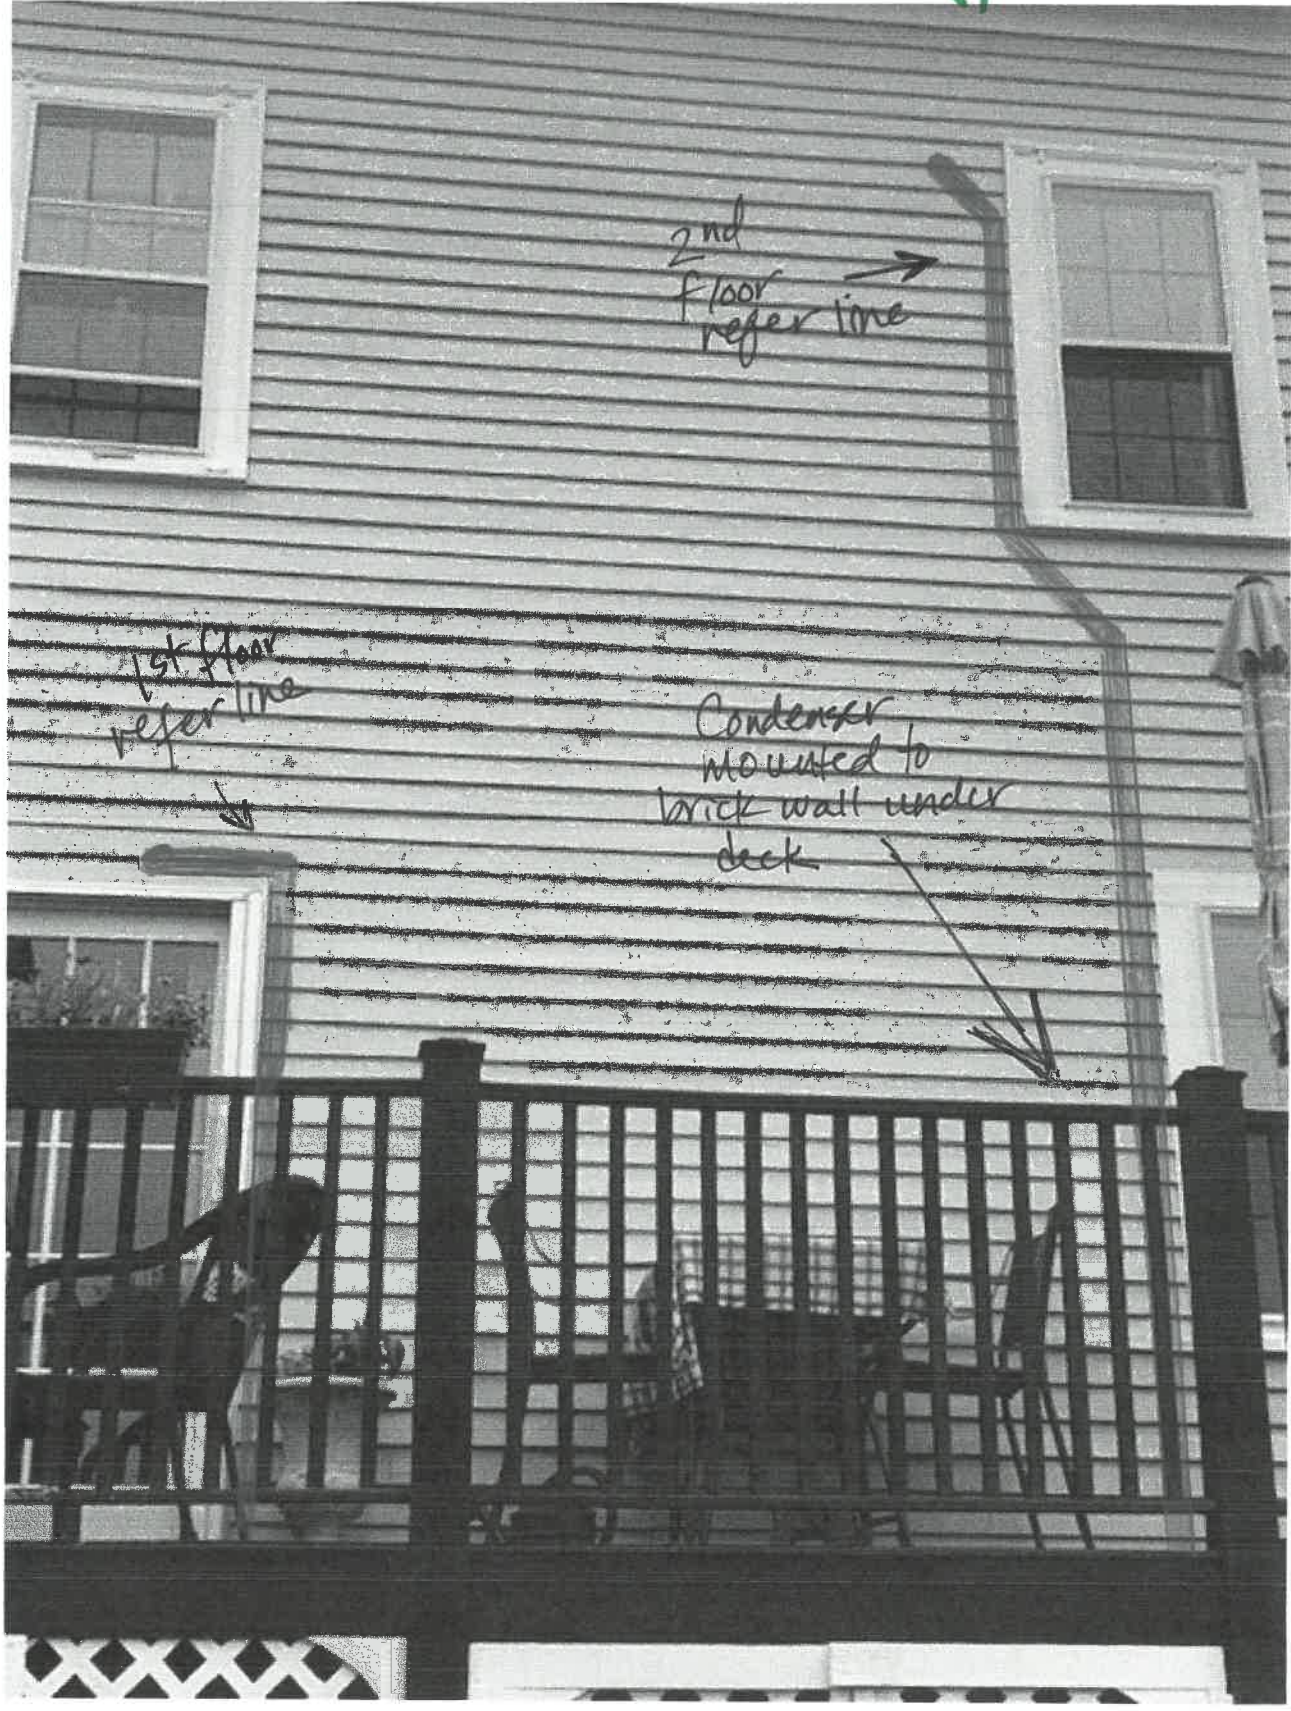 2nd
floor
refer line
1st floor
refer line
Condenser
mounted to
brick wall under
deck